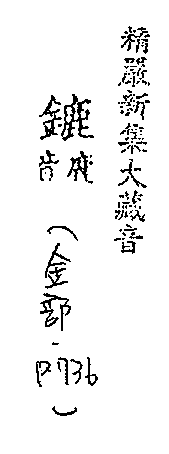 精嚴新集大藏音
鏕
(金部.P736)